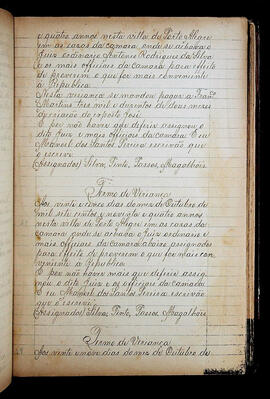 e quatro annos nesta villa de Porto Alegre
em as casas da camara, onde se achava o
Juiz ordinario Antonio Rodrigues da Silva
e os mais officiaes da camara para effeito
de proverem o que for mais conveniente
a Republica.
Nesta veriança se mandou pagar a Franco
Martins tres mil e duzentos de dous mezes
de criação do exposto José.
E por não haver que deferir assignou o
dito Juiz e mais officiaes da camara. E eu
Manoel dos Santos Pereira escrivão que
o escrevi.
(Assignados) Silva, Pinto, Passos, Magalhães
Termo de Veriança
Aos vinte e cinco dias do mez de Outubro de
mil sete centos e noventa e quatro annos
nesta villa de Porto Alegre em as casas da
camara onde se achava o Juiz ordinario e
mais officiaes da camara abaixo assignados
para effeito de proverem o que for mais con-
veniente a Republica.
E por não haver mais que deferir assig-
nou o dito Juiz e os officiaes da camara.
E eu Manoel dos Santos Pereira escrivão
que o escrevi.
(Assignados) Silva, Pinto, Passos, Magalhães
Termo de Veriança
Aos vinte e nove dias do mez de Outubro de